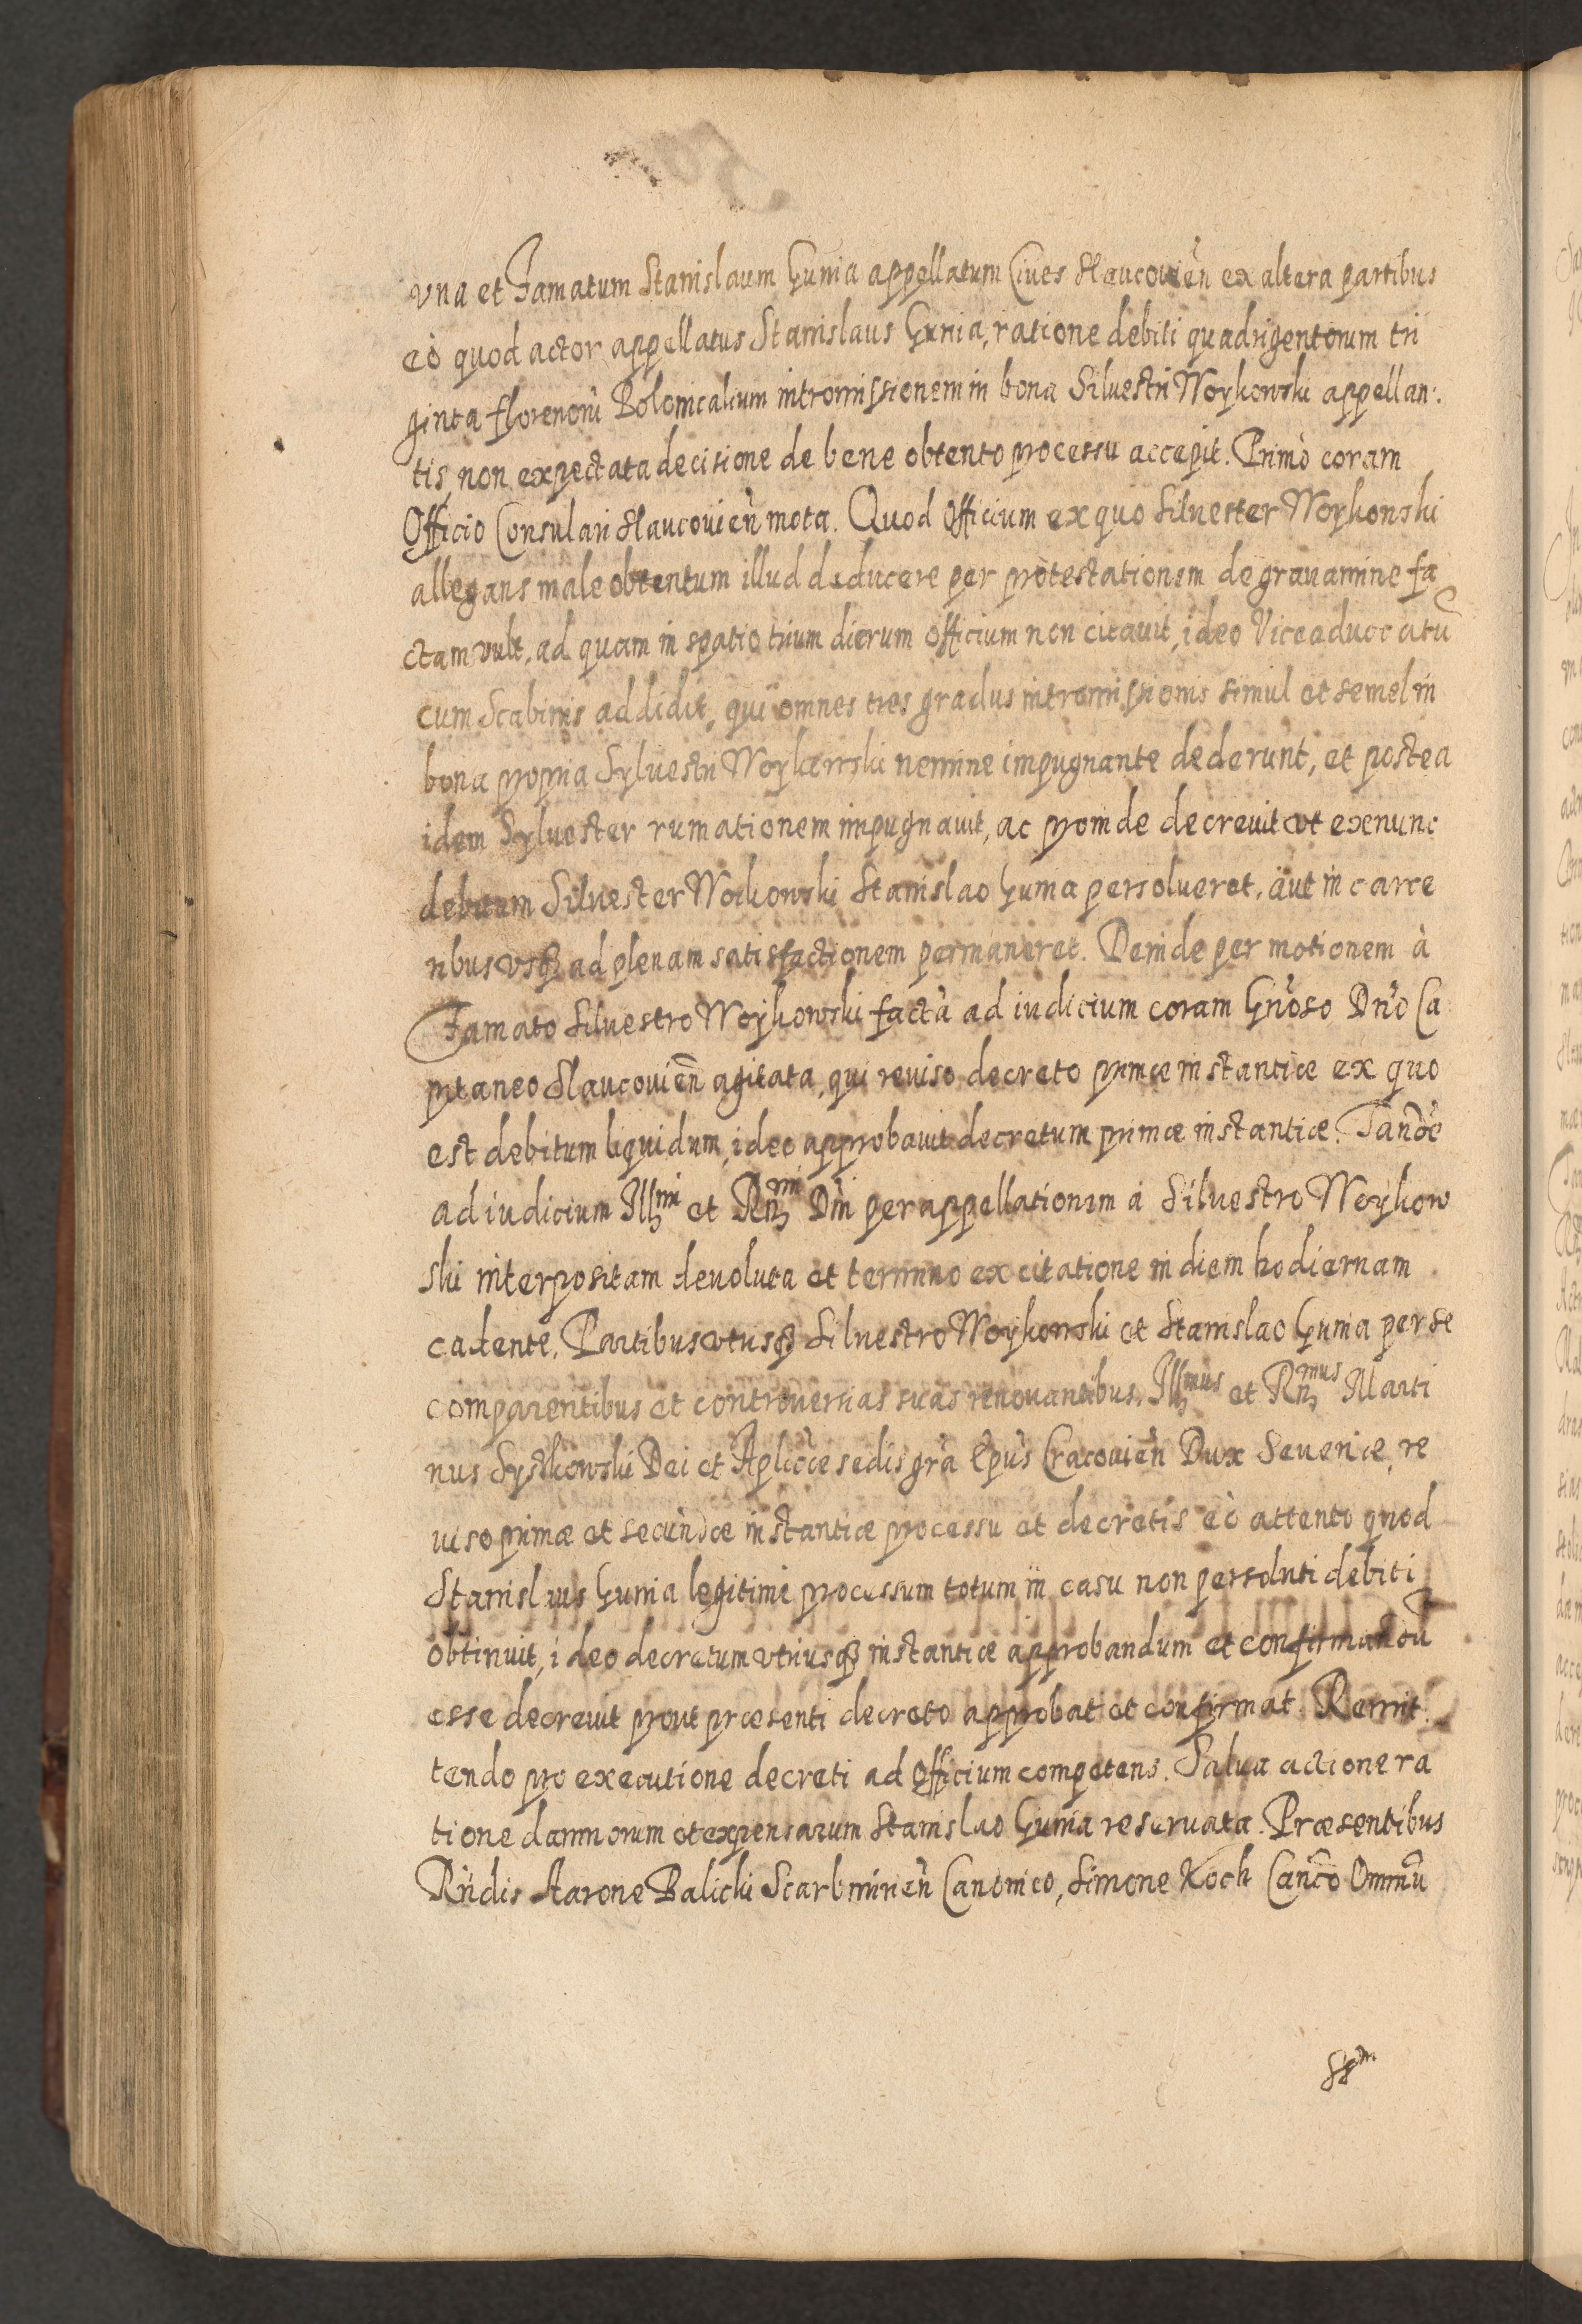 vna et Famatum Stanislaum Gunia appellatum Ciues Slaucouien̄ ex altera partibus
eò quod actor appellatus Stanislaus Gunia, ratione debiti quadrigentorum tri
ginta florenorū Polonicalium intromissionem in bona Siluestri Woykowski appellan:
tis, non expectata decisione de bene obtento processu accepit. Primò coram
Officio Consulari Slaucouien̄ mota. Quod Officium ex quo Siluester Woykowski
allegans male obtentum illud deducere per protestationem de grauamine fa
ctam vult, ad quam in spatio trium dierum officium non citauit, ideo Viceaduocatū
cum Scabinis addidit, qui omnes tres gradus intromissionis simul et semel in
bona propria Syluestri Woykowski nemine impugnante dederunt, et postea
idem Syluester rumationem impugnauit, ac proinde decreuit vt exnunc
debitum Siluester Wokowski Stanislao Gunia persolueret, aut in carce
ribus vsqꝫ ad plenam satisfactionem permaneret. Deinde per motionem à
Famato Siluestro Woykowski factà ad iudicium coram Gn̄oso Dn̄o Ca
pitaneo Slaucouien̄ agitata, qui reuiso decreto primæ instantiæ ex quo
est debitum liquidum, ideo approbauit decretum primæ instantiæ. Tandē
ad iudicium Illmi et Rnmi Dn̄i per appellationem à Siluestro Woykow
ski interpositam deuoluta et termino ex citatione in diem hodiernam
cadente. Partibus vtrisqꝫ Siluestro Woykowski et Stanislao Gunia per se
comparentibus et controuersias suas renouantibus. Illmus et Rnmus Marti
nus Syszkowski Dei et Aplicæ sedis grā Epūs Cracouien̄ Dux Seueriæ, re
uiso primæ et secundæ instantiæ processu et decretis eò attento quod
Stanislaus Gunia legitimè processum totum in casu non persoluti debiti
obtinuit, ideo decretum vtriusqꝫ instantiæ approbandum et confirmandū
esse decreuit prout præsenti decreto approbat et confirmat. Remit:
tendo pro executione decreti ad Officium competens. Salua actione ra
tione damnorum et expensarum Stanislao Gunia reseruata. Præsentibus
Rn̄dis Aarone Balicki Scarbimirien̄ Canonico, Simone Koch Canc̄o Omniū